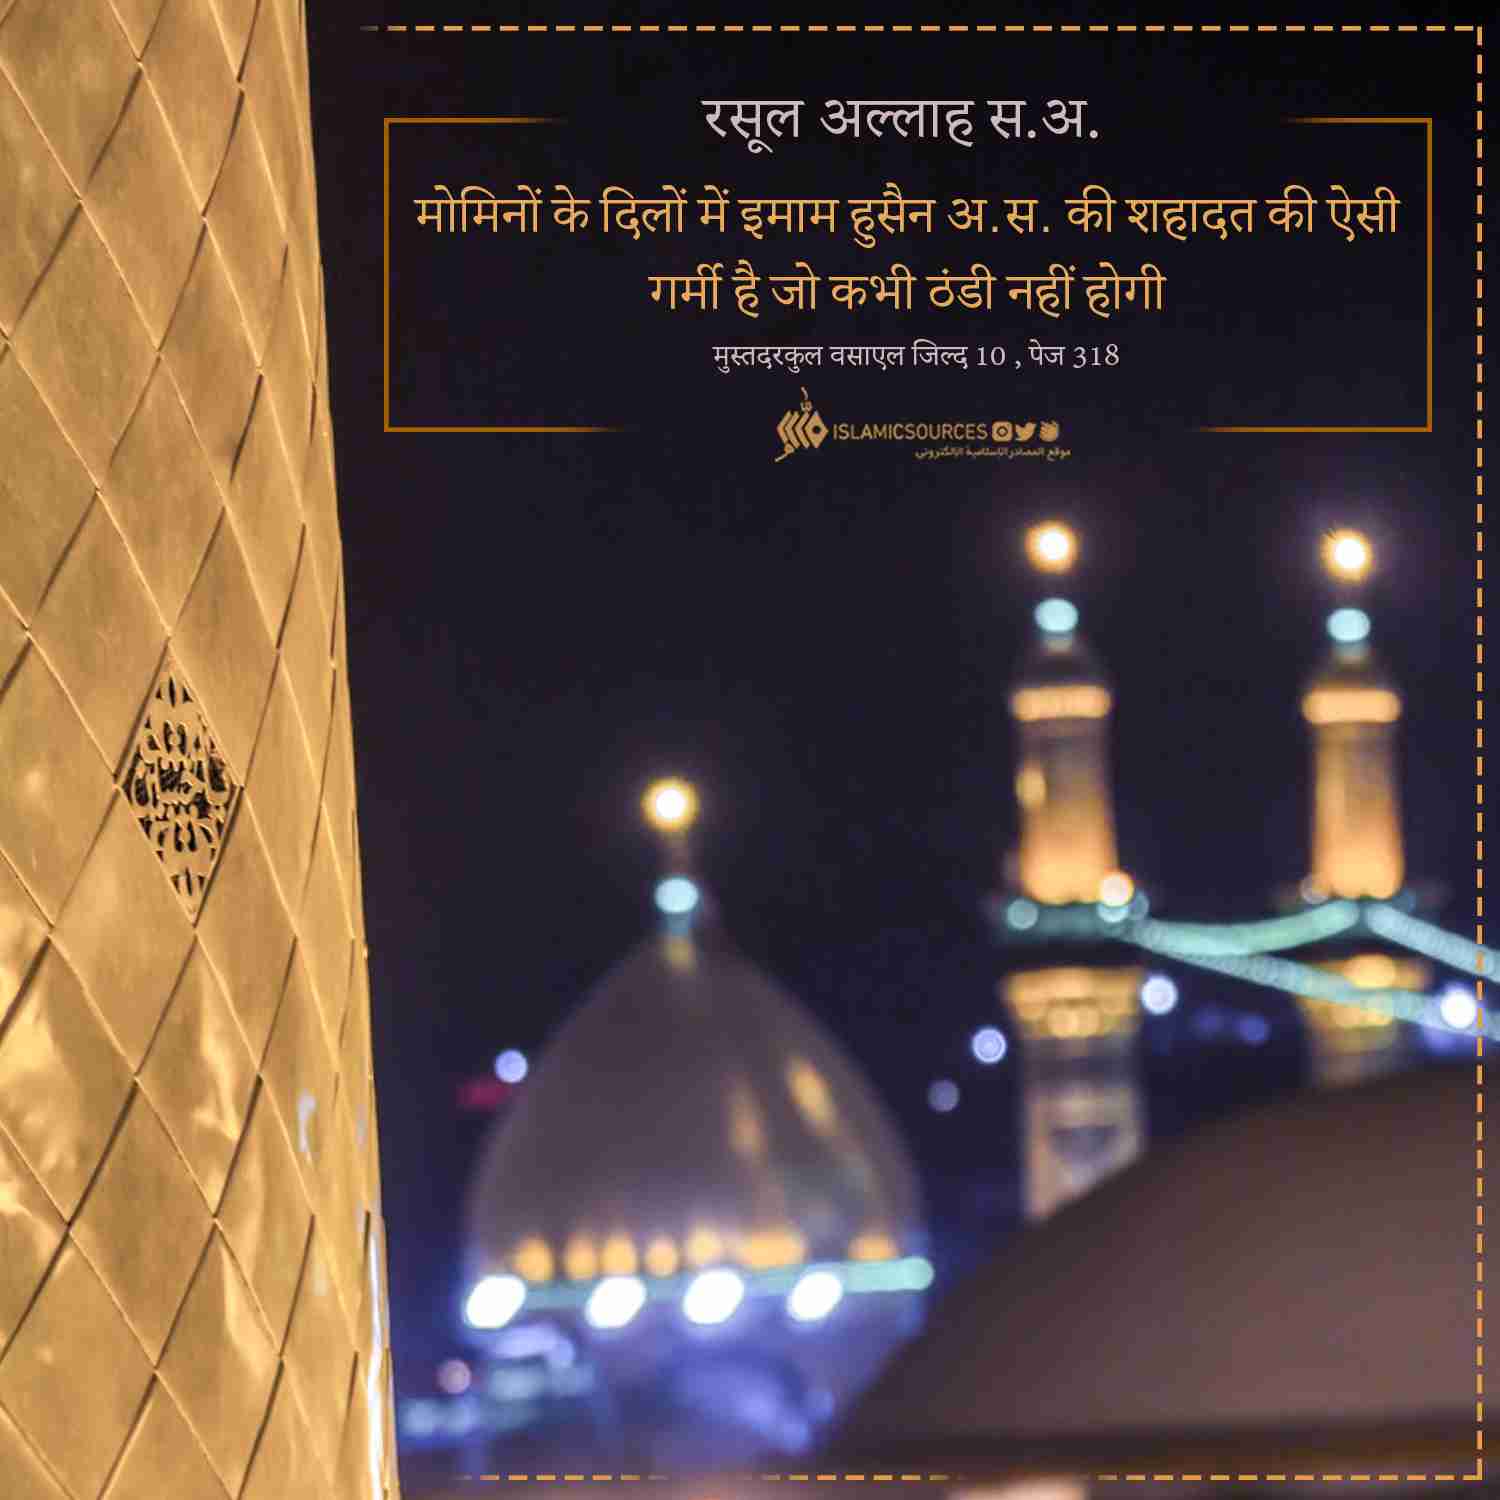 रसूल अल्लाह स.अ.
मोमिनों के दिलों में इमाम हुसैन अ.स. की शहादत की ऐसी
गर्मी है जो कभी ठंडी नहीं होगी
मुस्तदरकुल वसाएल जिल्द 10 , पेज 318
ISLAMICSOURCES
موقع المصادر الإسلامية الإلكتروني